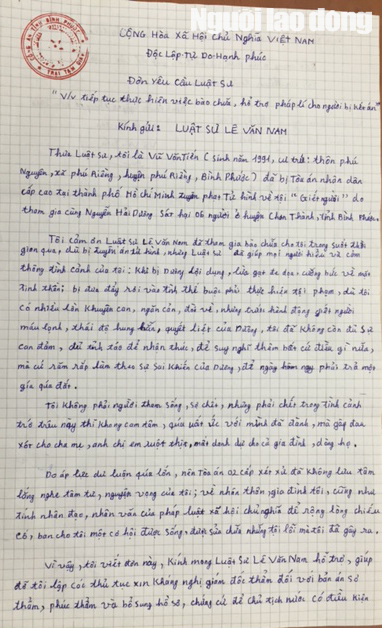 Người lao động
CỘNG HÒA XÃ HỘI CHỦ NGHĨA VIỆT NAM
Độc Lập-Tự Do-Hạnh phúc
Đơn Yêu Cầu Luật Sư
"V/v tiếp tục thực hiện việc bào chữa, hỗ trợ pháp lí cho người bị kết án"
Kính gửi: LUẬT SƯ LÊ VĂN NAM
Thưa Luật sư, tôi là Vũ Văn Tiến (sinh năm 1991, cư trú: thôn phú
Nguyên, xã phú Riềng, huyện phú Riềng, Bình Phước) đã bị Tòa án nhân dân
cấp cao tại thành phố Hồ Chí Minh tuyên phạt Tử hình về tội "Giết người" do
tham gia cùng Nguyễn Hải Dương sát hại 06 người ở huyện Chơn Thành, tỉnh Bình Phước.
Tôi cảm ơn Luật sư Lê Văn Nam đã tham gia bào chữa cho tôi trong suốt thời
gian qua, dù bị tuyên án tử hình, nhưng Luật sư đã giúp mọi người hiểu và cảm
thông tình cảnh của tôi: Khi bị Dương lợi dụng, lừa gạt đe dọa, cưỡng bức về mặt
tinh thần; bị đưa đẩy rơi vào tình thế buộc phải thực hiện tội phạm, dù tôi
có nhiều lần khuyên can, ngăn cản, nhưng trước hành động giết người
máu lạnh, thái độ hung hãn, quyết liệt của Dương, tôi đã không còn đủ sự
can đảm, đủ tỉnh táo để nhận thức, để suy nghĩ thêm bất cứ điều gì nữa,
mà cứ răm rắp làm theo sự sai khiến của Dương, để ngày hôm nay phải trả một
giá quá đắt.
Tôi không phải người tham sống, sợ chết, nhưng phải chết trong tình cảnh
trớ trêu này thì không cam tâm, quá uất ức với mình đã đành, mà gây đau
xót cho cha mẹ, anh chị em ruột thịt, mất danh dự cho cả gia đình, dòng họ.
Do áp lực dư luận quá lớn, nên Tòa án 02 cấp xét xử đã không lưu tâm
lắng nghe tâm tư, nguyện vọng của tôi; về nhân thân, gia đình tôi, cũng như
tính nhân đạo, nhân văn của pháp luật xã hội chủ nghĩa để rộng lòng chiếu
cố, ban cho tôi một cơ hội được sống, được sửa chữa những lỗi lầm tôi đã gây ra.
Vì vậy, tôi viết đơn này, kính mong Luật sư Lê Văn Nam hỗ trợ, giúp
đỡ tôi lập các thủ tục xin kháng nghị giám đốc thẩm đối với bản án sơ
thẩm, phúc thẩm và bổ sung hồ sơ, chứng cứ để Chủ tịch nước có điều kiện